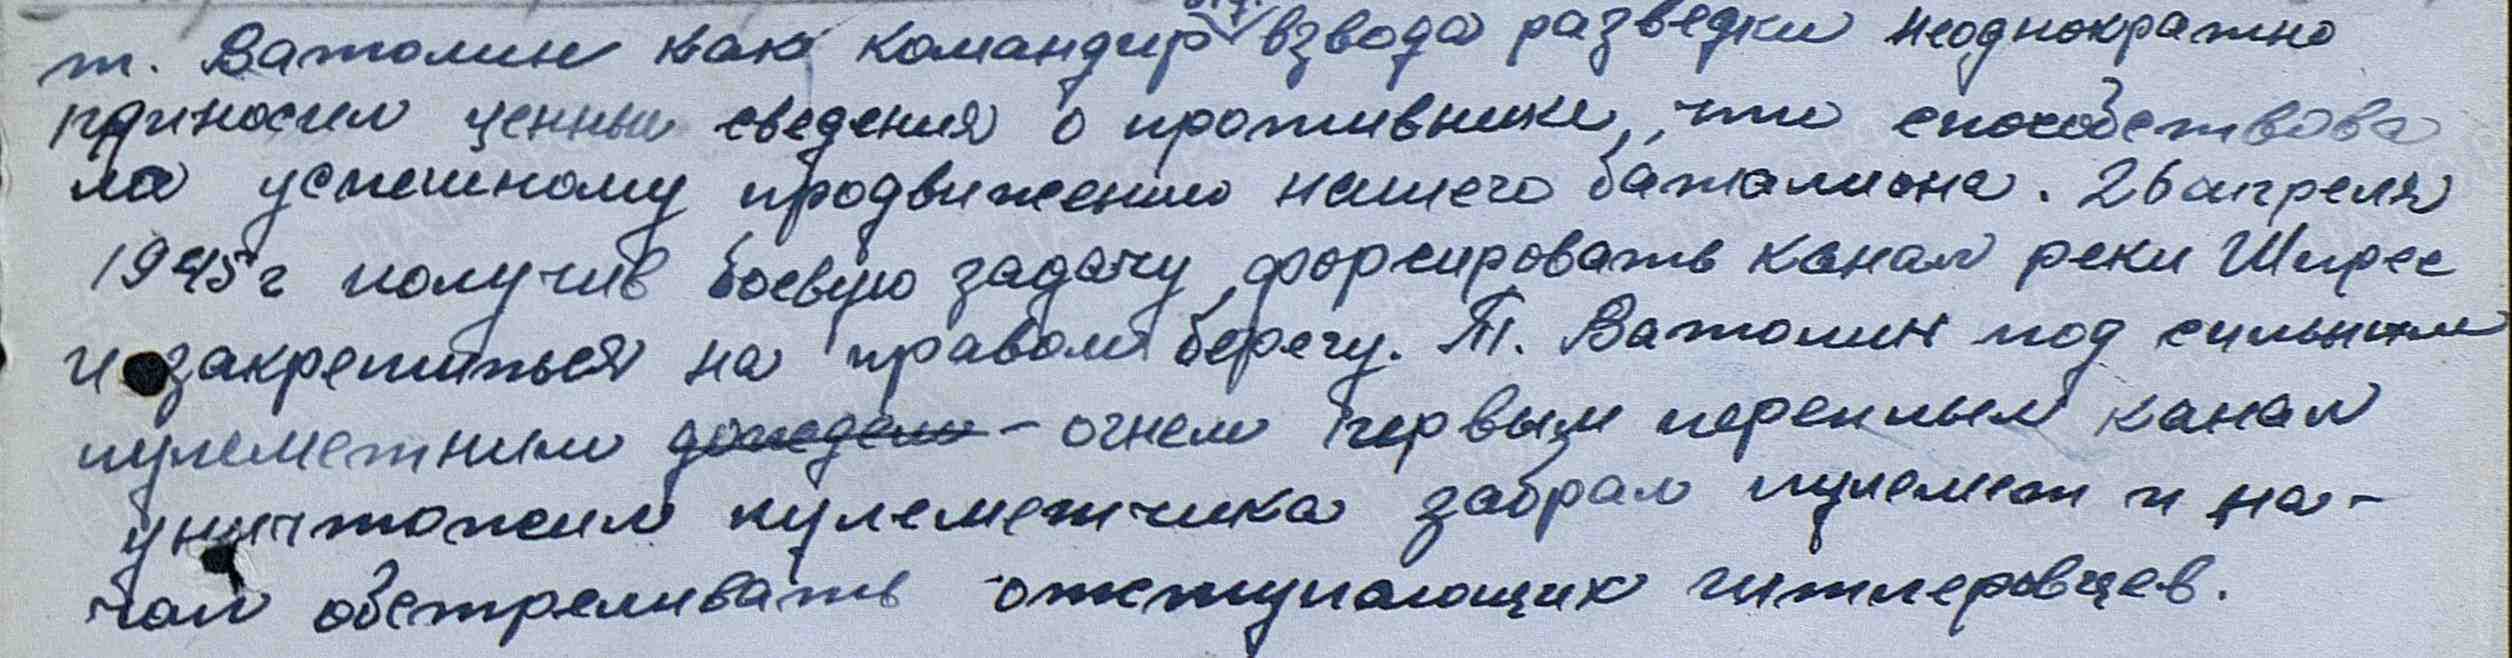 т. Ватолин как командир взвода разведки неоднократно
приносил ценные сведения о противнике, что способствова
ло успешному продвижению нашего баталиона. 26 апреля
1945 г получив боевую задачу, форсировать канал реки Шпрее
и закрепиться на правом берегу. Т. Ватолин под сильным
пулеметним дождем - огнем первым переплыл канал
уничтожил пулеметчика забрал пулемет и на-
чал обстреливать отступающих гитлеровцев.